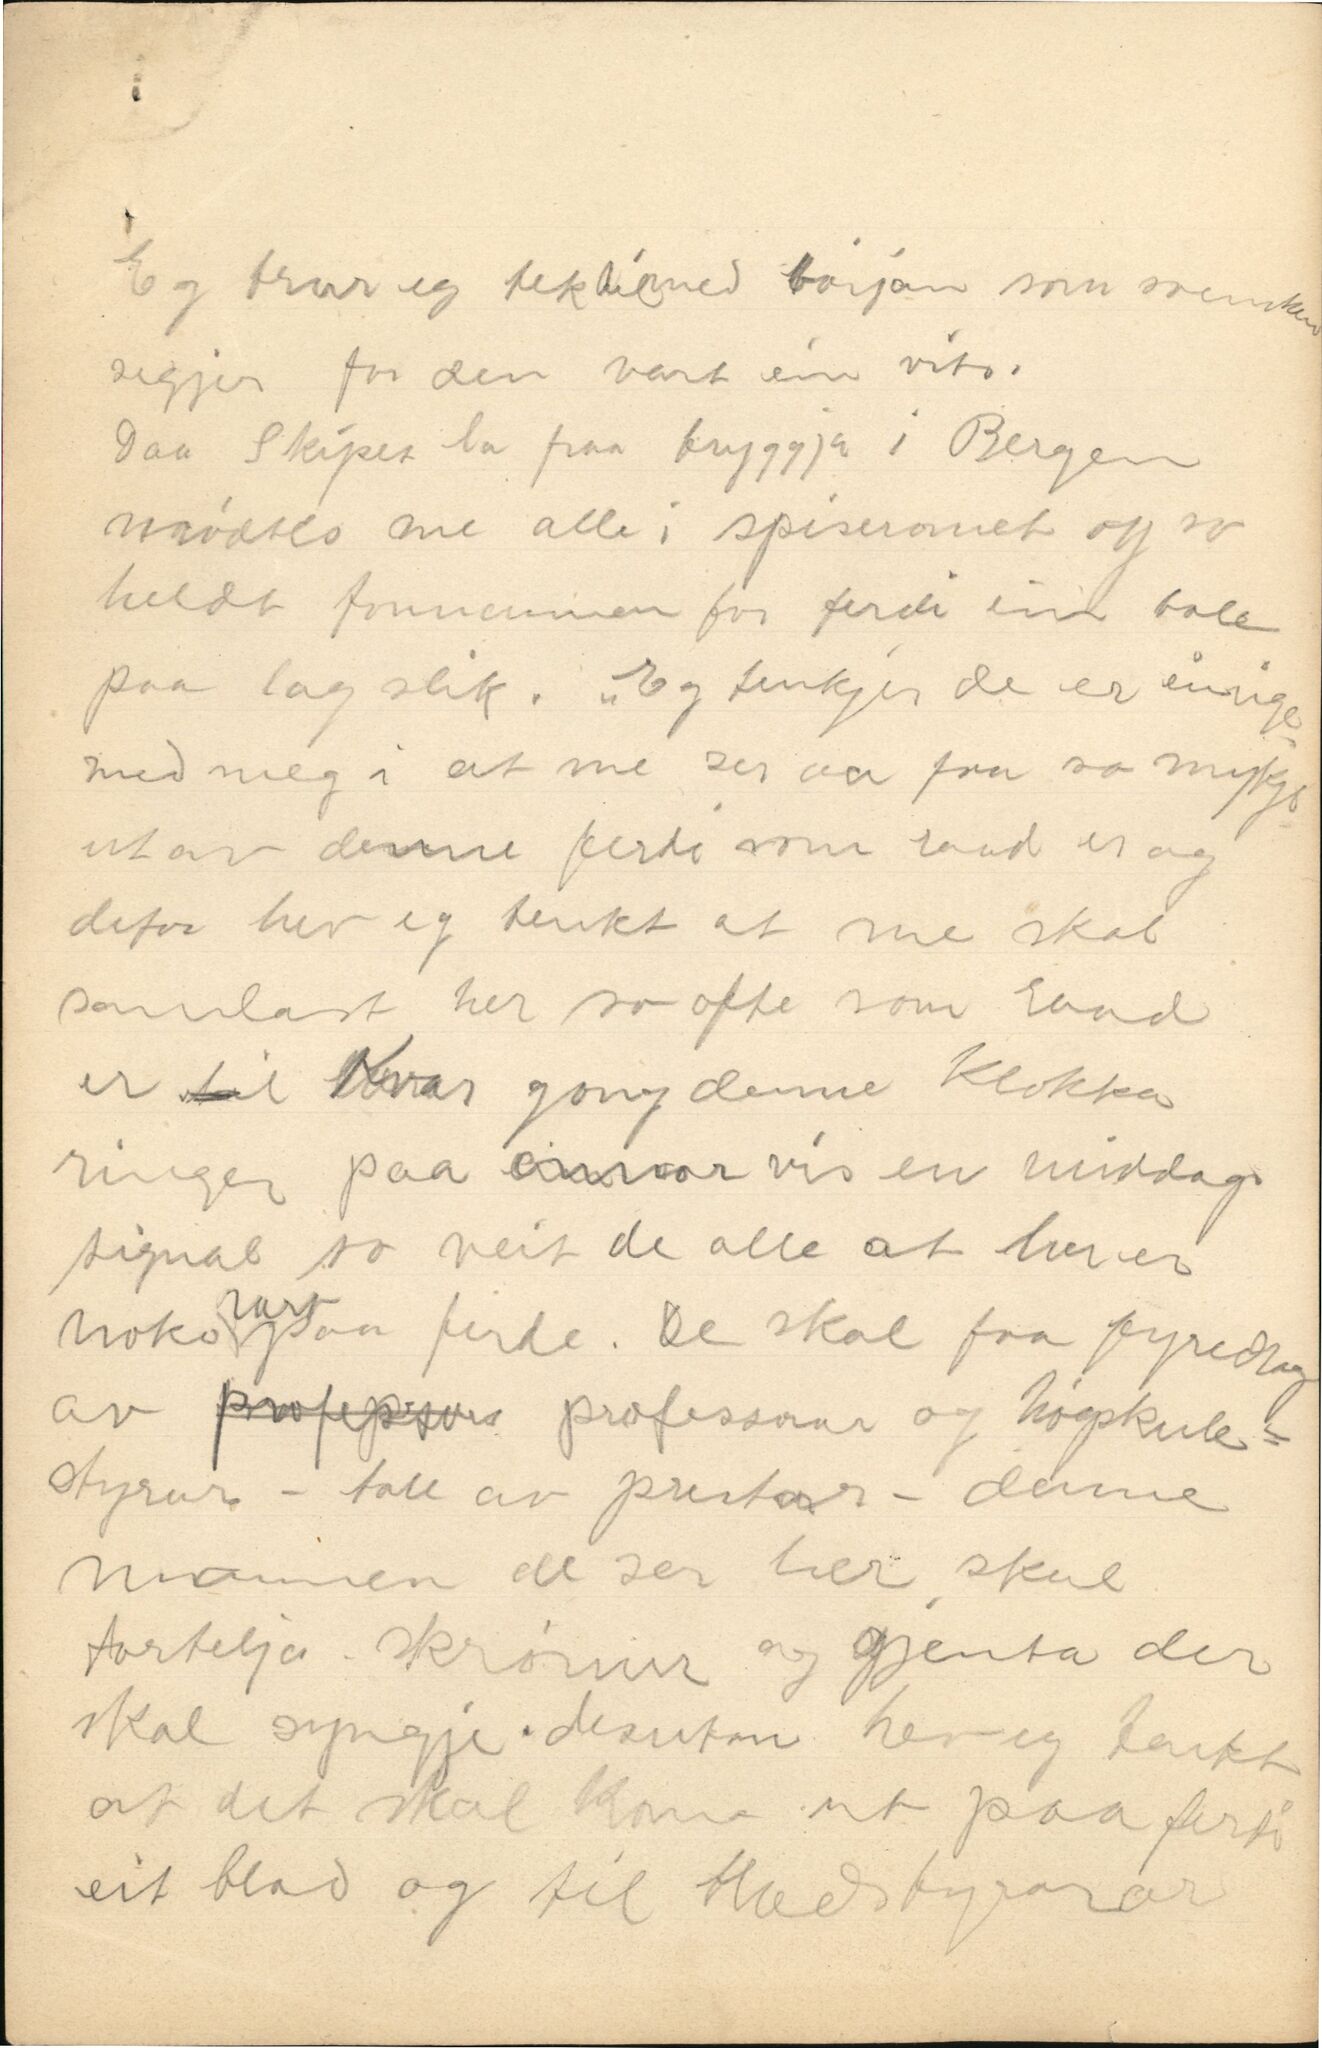 Eg trur eg tek til med början som svensken
segjer for den vart ein vits.
Daa Skipet la fraa bryggja i Bergen
mödtes me alle i spiseromet og so
heldt formannen for ferdi ein tale
paa lag slik. „Eg tenkjer de er einige
med meg i at me ser aa faa so mykje
ut av denne ferdi som raad er og
defor hev eg tenkt at me skal
samlast her so ofte som raad
er til Kvar gong denne Klokka
ringer paa annarvis en middags
signal so veit de alle at her er
noko rart paa ferde. De skal faa fyredrag
av professors professorar og högskule-
styrar - tale av prestar - denne
mannen de ser her skal
fortelja skrönur og gjenta der
skal syngje. desutan hev eg tenkt
at det skal koma ut paa ferdi
eit blad og til bladstyrarar